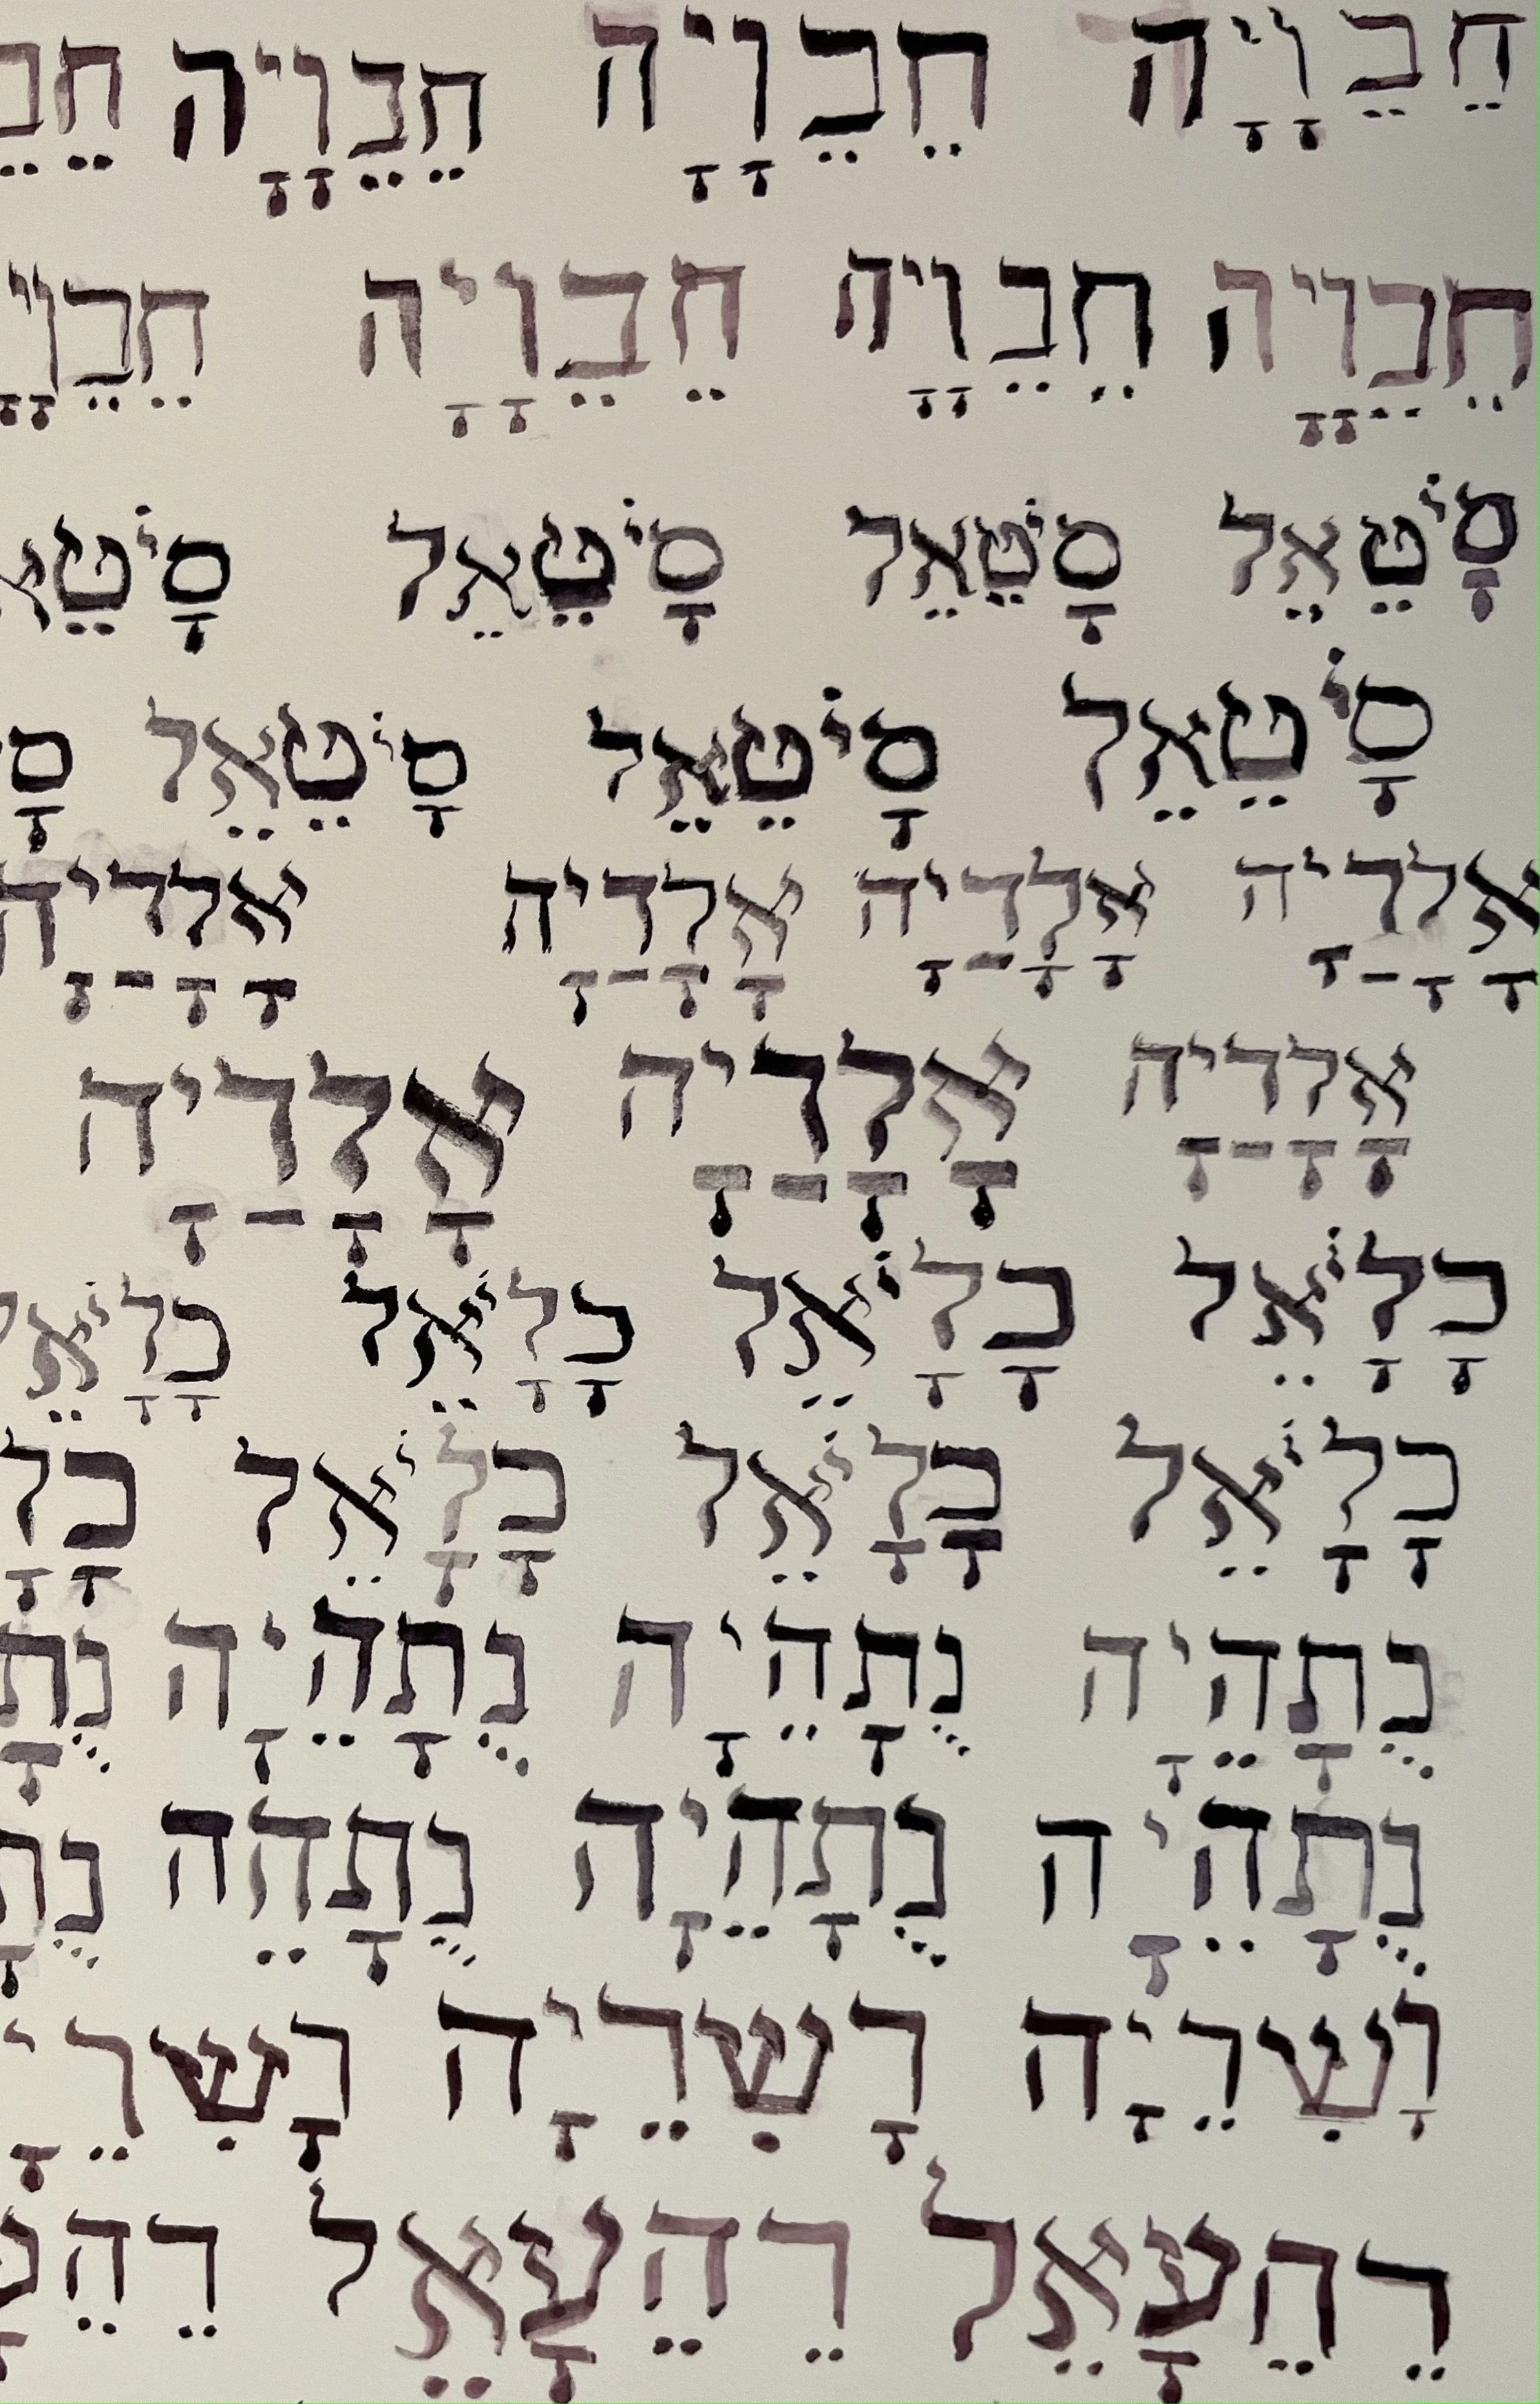 חֵבֵוָיָה חֵבֵוָיָה חֵבֵוָיָה חֵבֵ
חֵבֵוָיָה חֵבֵוָיָה חֵבֵוָיָה חֵבֵוָיָ
סָיֹטֵאֵל סָיֹטֵאֵל סָיֹטֵאֵל סָיֹטֵא
סָיֹטֵאֵל סָיֹטֵאֵל סָיֹטֵאֵל סָ
אָלָדַיָה אָלָדַיָה אָלָדַיָה אָלָדַיָה
אָלָדַיָה אָלָדַיָה אָלָדַיָה
כָלָיֹאֵל כָלָיֹאֵל כָלָיֹאֵל כָלָיֹאֵל
כָלָיֹאֵל כָלָיֹאֵל כָלָיֹאֵל כָלָ
נֻתָהֵיָה נֻתָהֵיָה נֻתָהֵיָה נֻתָ
נֻתָהֵיָה נֻתָהֵיָה נֻתָהֵה נֻתָ
וָשִרֵיָה רָשִרֵיָה רָשִרֵיָ
רֵהֵעָאֵל רֵהֵעָאֵל רֵהֵעָ